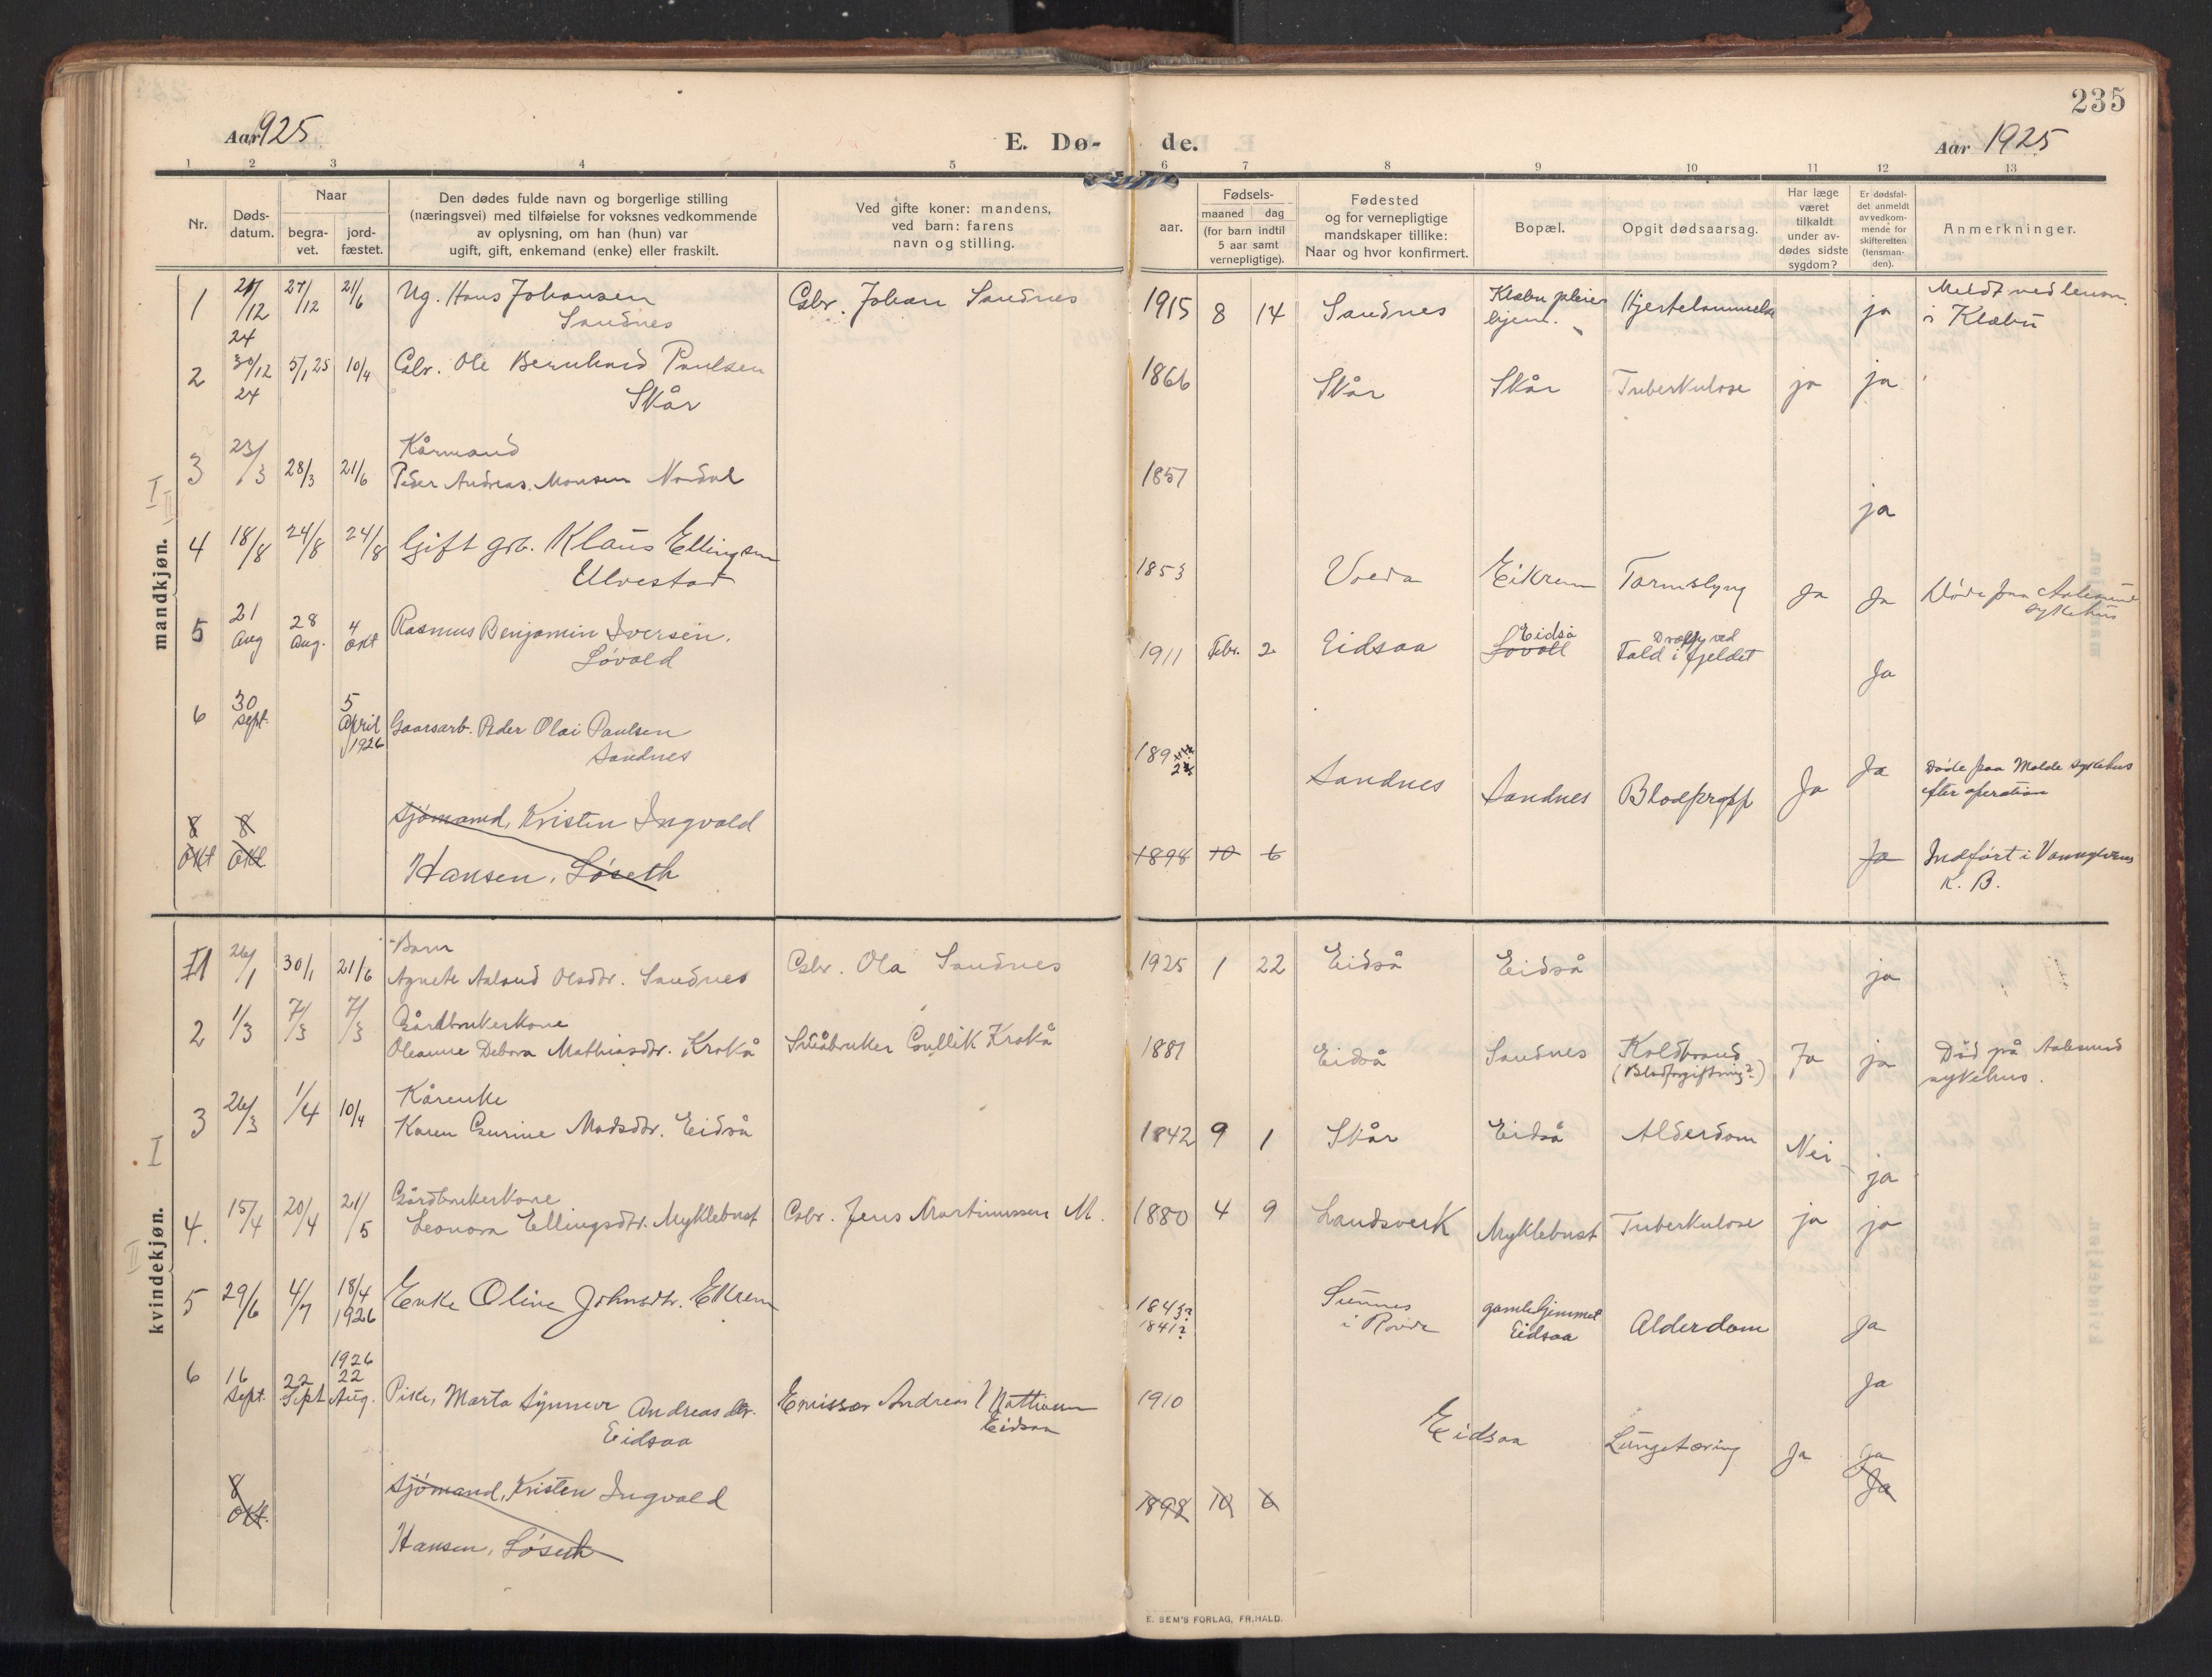 235
Aar 1925
E. Dø-
de.
Aar 1925
1 2 3 4 5 6 7 8 9 10 11 12 13
Nr.
Døds-
datum.
Naar
begra-
vet.
jord-
fæstet.
Den dødes fulde navn og borgerlige stilling
(næringsvei) med tilføielse for voksnes vedkommende
av oplysning, om han (hun) var
ugift, gift, enkemand (enke) eller fraskilt.
Ved gifte koner: mandens,
ved barn: farens
navn og stilling.
aar.
Fødsels-
maaned
dag
(for barn indtil
5 aar samt
vernepligtige).
Fødested
og for vernepligtige
mandskaper tillike:
Naar og hvor konfirmert.
Bopæl.
Opgit dødsaarsag.
Har læge
været
tilkaldt
under av-
dødes sidste
sygdom?
Er dødsfal-
det anmeldt
av vedkom-
mende for
skifteretten
(lensman-
den).
Anmerkninger.
mandkjøn.
I
II
1 /12 24 27/12 21/6 Ug. Hans Johansen
Sandnes
Gbr. Johan Sandnes
1915 8 14 Sandnes Klæbu pleie
hjem. ja Meldt ved lensm.
i Klæbu
2 30/12 24 5/1 25 10/4 Gbr. Ole Bernhard Paulsen
Skår
1866 Skår Skår Tuberkulose ja ja
3 23/3 28/3 21/6 Kårmand
Peder Andreas Monsen Nordal
1857 ja
4 18/8 24/8 24/8 Gift grb. Klaus Ellingsen
Ulvestad
1853 Voeda Eikrem Tarmslyng Ja Ja Døde paa Aalesund
sykehus
5 21 Aug 28 Aug. 4 Okt Rasmus Benjamin Iversen,
Løvold
1911 Febr. 2 Eidsaa Eidså
Løvoll
Dræpt ved
Fald i fjeldet Ja
6 30 Sept. 5 April 1926 Gaarsarb. Peder Olai Paulsen
Sandnes
189 Sandnes Sandnes Blodpropp Ja Ja Døde paa Molde sykehus
efter operation
8 Okt 8 Okt Sjømand, Kristen Ingvald
Hansen, Løseth
1898 10 6 Ja Indført i Vannylvens
K. B.
kvindekjøn.
I
II
1 26/1 30/1 21/6 Barn
Agnete Aaland Olsdtr. Sandnes
Gbr. Ola Sandnes
1925 1 22 Eidså Eidså ja
2 1/3 7/3 7/3 Gårdbrukerkone
Oleanne Debora Mathiasdtr. Krokå
Småbruker Gullik Krokå
1881 Eidså Sandnes Koldbrand
(Blodforgiftning?) Ja ja Död på Aalesund
sykehus.
3 26/3 1/4 10/4 Kårenke
Karen Gurine Madsdtr. Eidså
1842 9 1 Skår Eidså Alderdom Nei ja
4. 15/4 20/4 21/5 Gårdbrukerkone
Leonora Ellingsdtr. Myklebust
Gbr. Jens Martinussen M.
1880 4 9 Landsverk Myklebust Tuberkulose ja ja
5 29/6 4/7 18/4 1926 Enke Oline Johnsdtr. Ekrem
1843?
1841?
Sunnes
i Rovde
gamlehjemmet
Eidsaa
Alderdom Ja
6 16 Sept. 22 Sept 1926 22 Aug. Pike, Marta Synneve Andreasdtr.
Eidsaa
Emissær Andreas Mattisen
Eidsaa
1910 Eidsaa Lungetæring Ja Ja
Ja
8 Okt. Sjømand, Kristen Ingvald
Hansen, Løseth
1898 10 6 Ja
E. SEM'S FORLAG, FR.HALD.